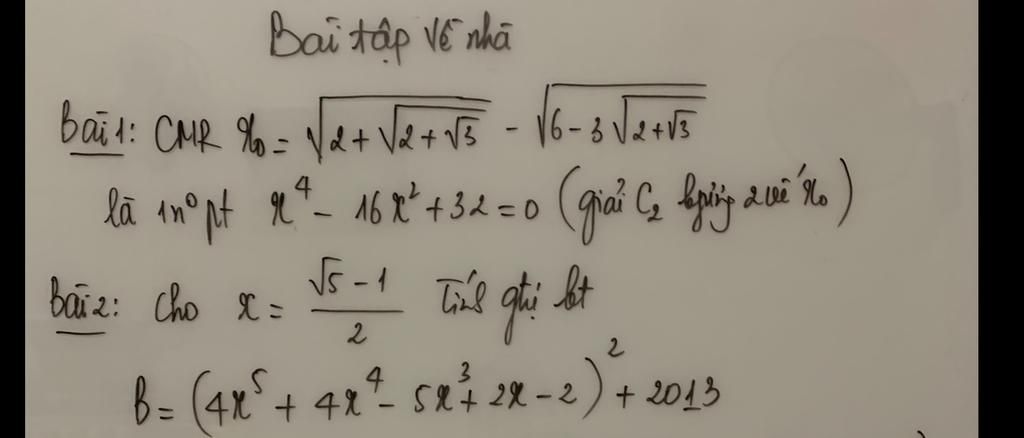 Bài tập về nhà
Bài 1: CMR x₀ = √(2 + √(2 + √3)) - √(6 - 3√(2 + √3))
là 1 n⁰ pt x⁴ - 16x² + 32 = 0 (giải C₂ bphương 2 vế x₀)
Bài 2: Cho x = (√5 - 1)/2 Tính gtrị bt
B = (4x⁵ + 4x⁴ - 5x³ + 2x - 2)² + 2013